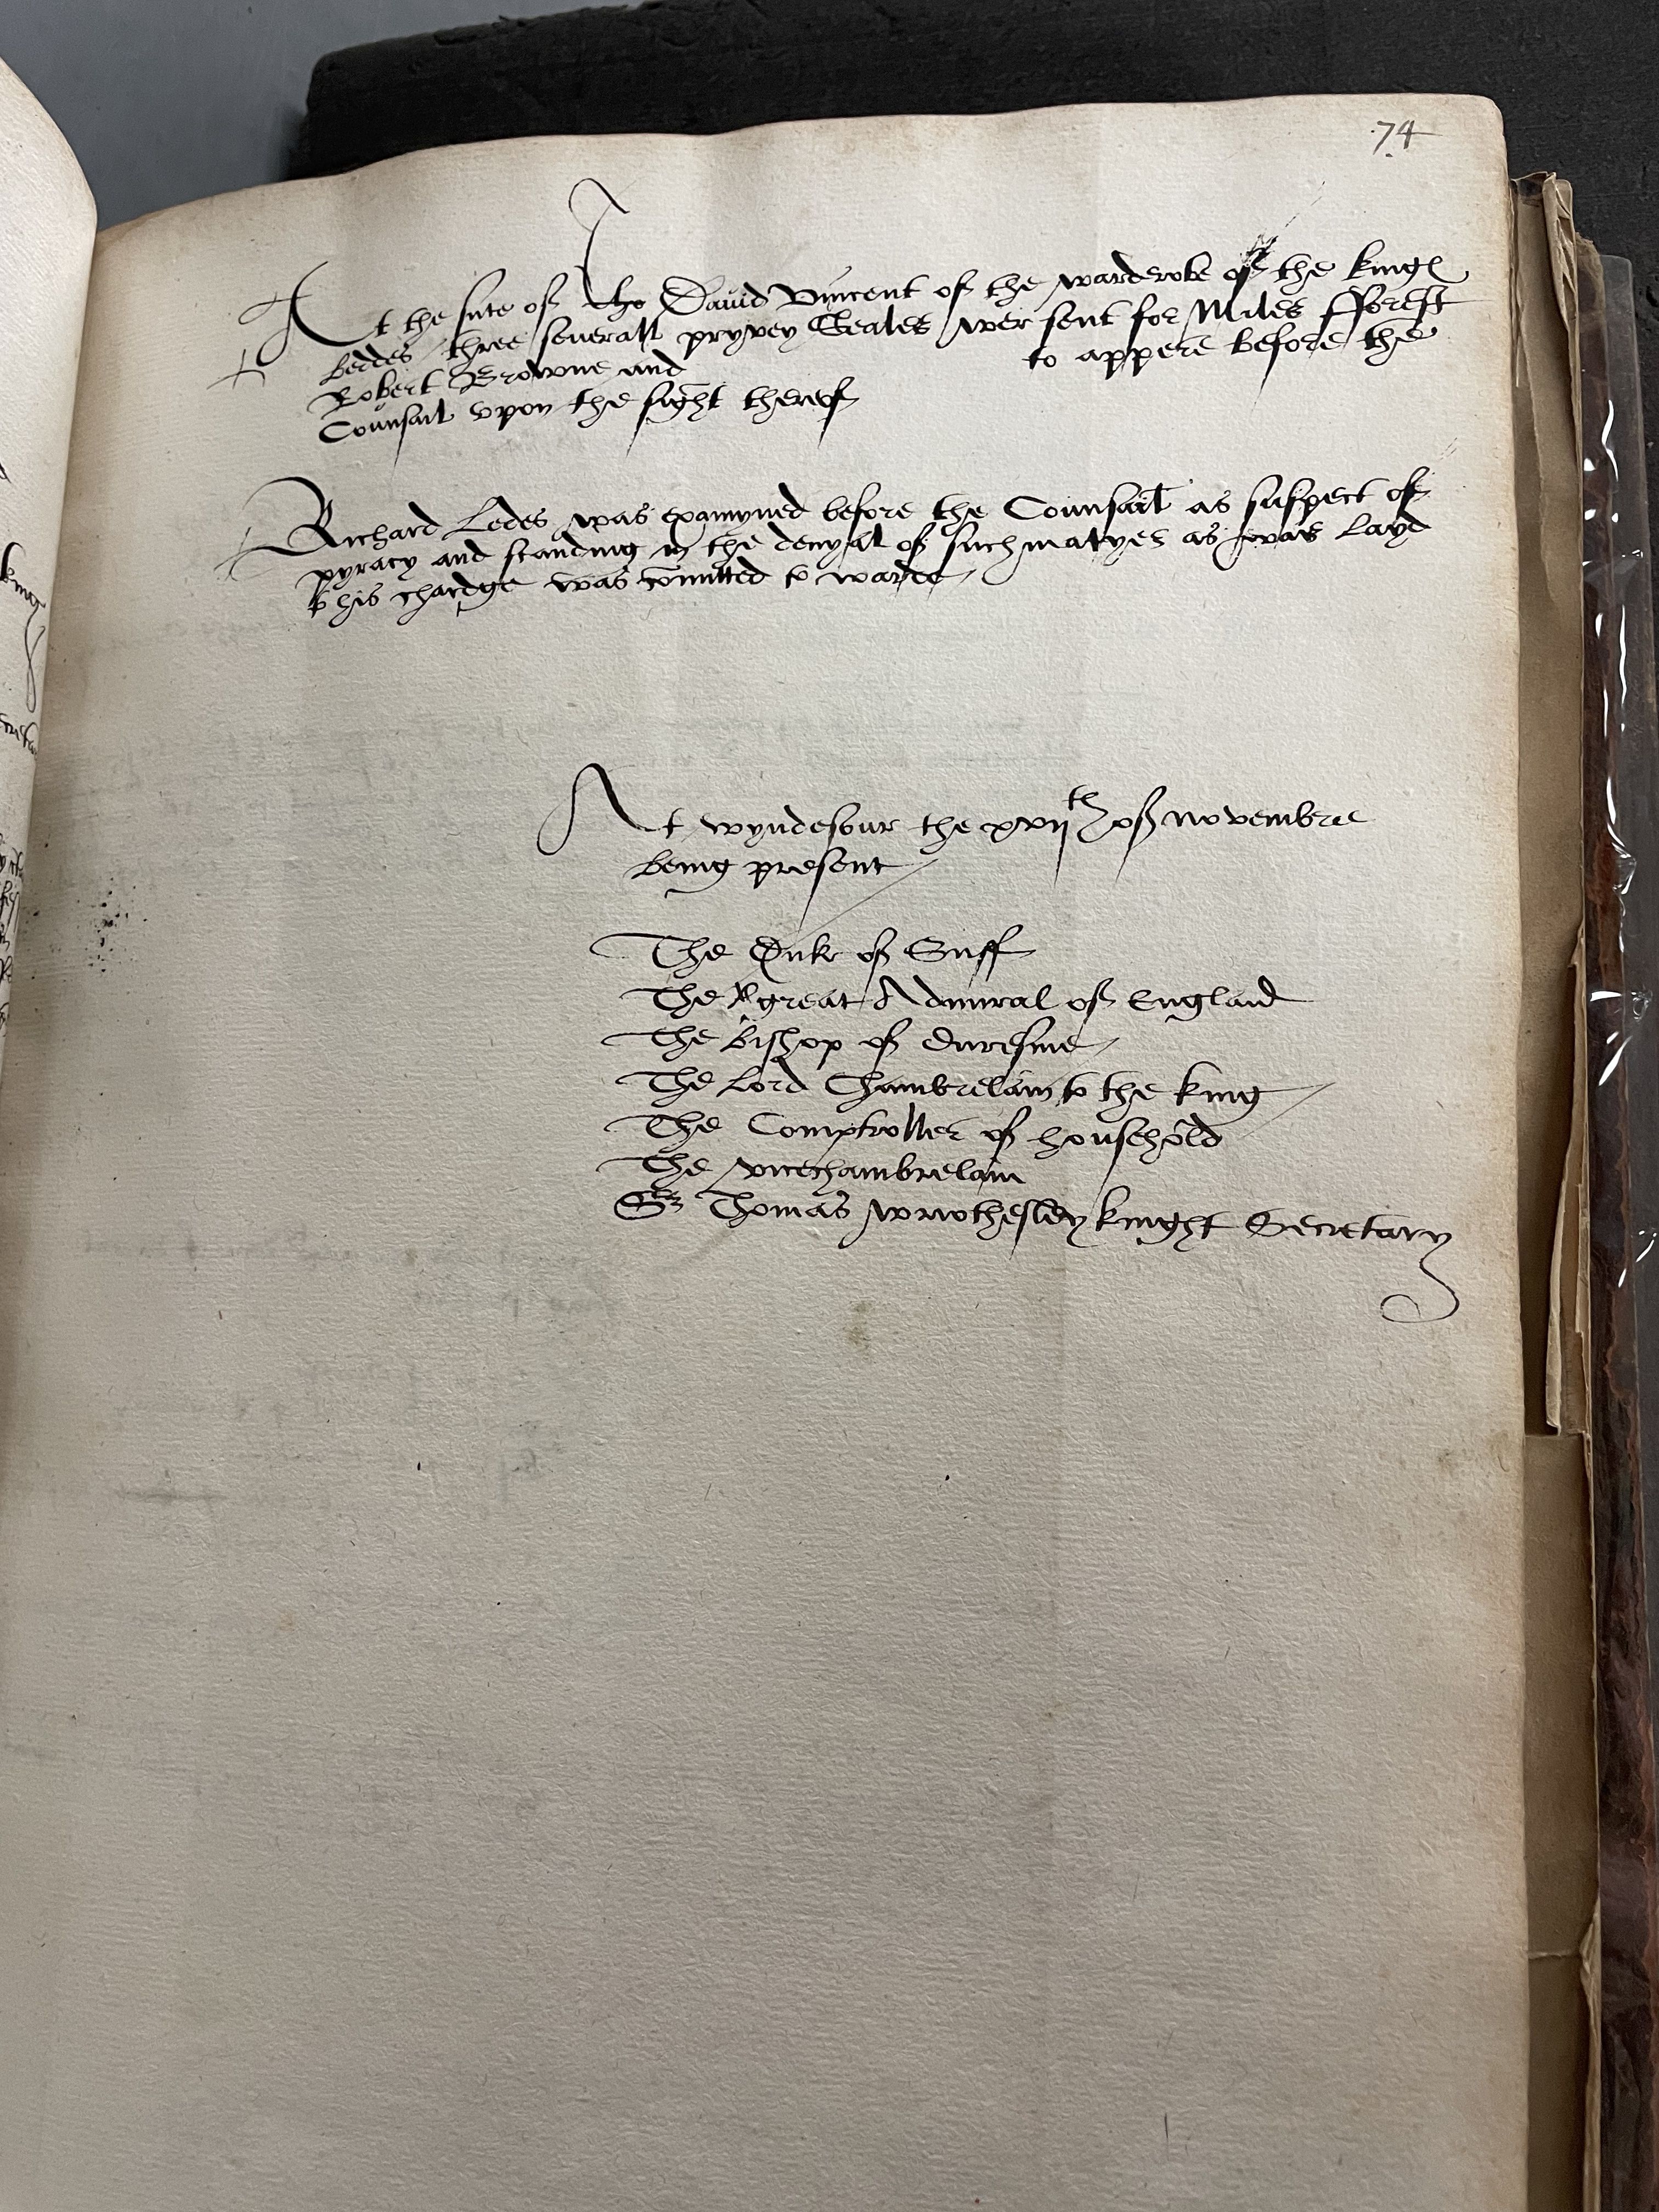 74
At the sute of Tho David Vincent of the warderobe of the kings
beddes three severall pryvey Seales wer sent for Miles fforest
Robert Browne and to appere before the
Counsail vpon the sight therof
Richard Ledes was examyned before the Counsail as suspect of
pyracy and standing in the denyal of such matyers as was layd
to his chardge was comitted to warde
At wyndesour the xvijth of novembre
being present
The Duke of Suff
The great Admiral of England
The Bishop of Duresme
The Lord Chambrelain to the king
The Comptroller of houshold
The vicechambrelain
Sr Thomas wriothesley knight Secretary